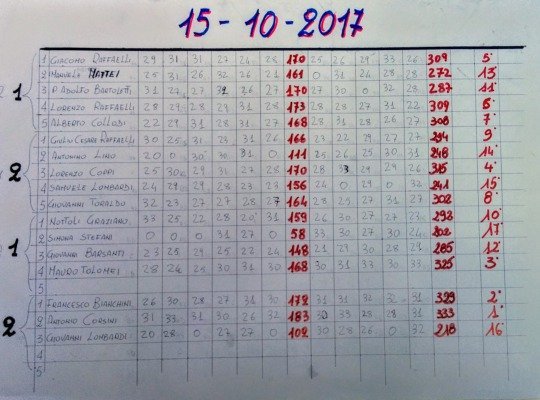 15-10-2017
1 GIACOMO RAFFAELLI 29 31 31 27 24 28 170 25 26 29 33 26 309 5°
2 MANUELE MATTEI 25 31 26 32 26 21 161 0 31 24 28 28 272 13°
1 3 P. ADOLFO BARTOLETTI 31 27 27 32 26 27 170 27 30 0 32 28 287 11°
4 LORENZO RAFFAELLI 28 29 28 29 31 28 173 28 28 27 31 22 309 6°
5 ALBERTO COLLODI 22 29 31 28 31 27 168 28 31 28 26 27 308 7°
1 GIULIO CESARE RAFFAELLI 30 25 31 23 31 26 166 23 22 29 27 27 294 9°
2 ANTONINO 20 0 30 30 31 0 111 25 26 25 30 31 248 14°
2 3 LORENZO COPPI 25 30 29 31 27 28 170 28 33 29 29 26 315 4°
4 SAMUELE LOMBARDI 24 29 29 28 23 23 156 24 0 29 0 32 241 15°
5 GIOVANNI TORALDO 32 23 27 27 28 27 164 28 25 27 31 27 302 8°
1 NOTTOLI GRAZIANO 33 25 22 28 20 31 159 26 30 27 27 23 292 10°
2 SIMONA STEFANI 0 0 0 31 27 0 58 33 30 27 30 24 202 17°
1 3 GIOVANNI BARSANTI 23 25 29 25 22 24 148 21 29 30 28 29 285 12°
4 MAURO TOLOMEI 28 24 25 30 31 30 168 30 31 33 30 33 325 3°
5
1 FRANCESCO BIANCHINI 26 30 28 27 31 30 172 31 31 32 32 31 329 2°
2 2 ANTONIO CORSINI 31 33 31 30 26 32 183 30 33 28 28 31 333 1°
3 GIOVANNI LOMBARDI 20 28 0 27 27 0 102 30 28 26 0 32 218 16°
4
5